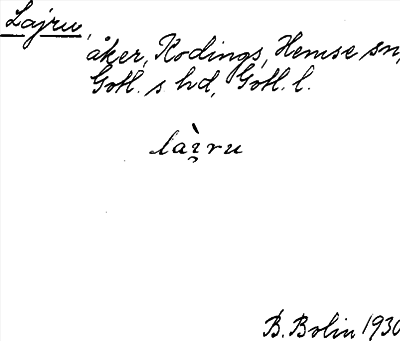 Lajru,
åker, Kodings, Hemse sn,
Gotl. s hd, Gotl. l.
la`i̯ru
B. Bolin 1930